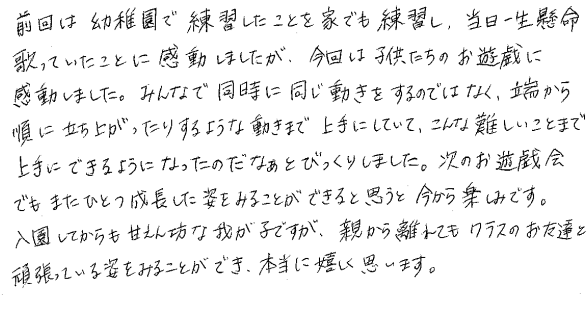 前回は幼稚園で練習したことを家でも練習し、当日一生懸命
歌っていたことに感動しましたが、今回は子供たちのお遊戯に
感動しました。みんなで同時に同じ動きをするのではなく、端から
順に立ち上がったりするような動きまで上手にしていて、こんな難しいことまで
上手にできるようになったのだなぁとびっくりしました。次のお遊戯会
でもまたひとつ成長した姿をみることができると思うと今から楽しみです。
入園してからも甘えん坊な我が子ですが、親から離れてもクラスのお友達と
頑張っている姿をみることができ、本当に嬉しく思います。